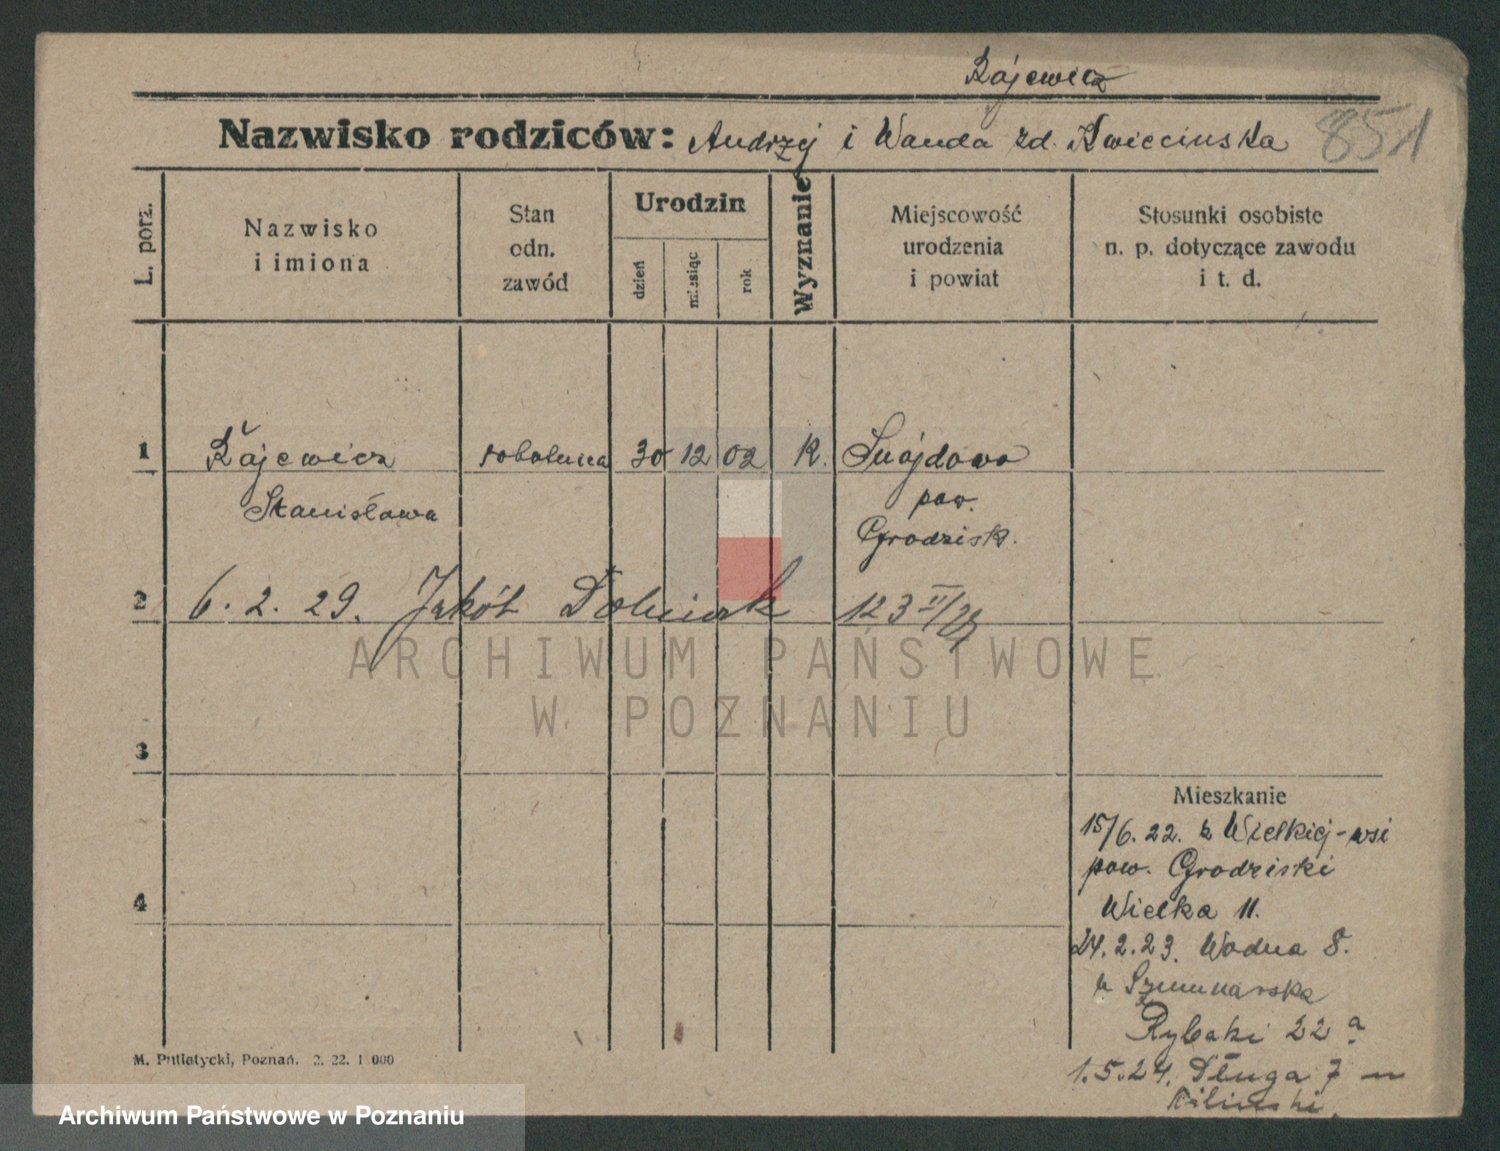 Rajewicz
Nazwisko rodziców: Andrzej i Wanda zd. Kwiecinska
851
L. porz.
Nazwisko
i imiona
Stan
odn.
zawód
Urodzin
dzień
miesiąc
rok
Wyznanie
Miejscowość
urodzenia
i powiat
Stosunki osobiste
n. p. dotyczące zawodu
i t. d.
1 Rajewicz robotnica 30 12 02 K. Snójdowo
Stanisława pow.
Grodzisk.
2 6. 2. 29. Jakób 123 II/29
ARCHIWUM PAŃSTWOWE
W POZNANIU
3
Mieszkanie
15/6. 22. z Wielkiej-wsi
pow. Grodziski
4
Wielka 11.
24. 2. 23. Wodna 8.
Rybaki 22 a
1. 5. 24. Długa 7
M. Putiatycki, Poznań. 2. 22. 1 000
Archiwum Państwowe w Poznaniu